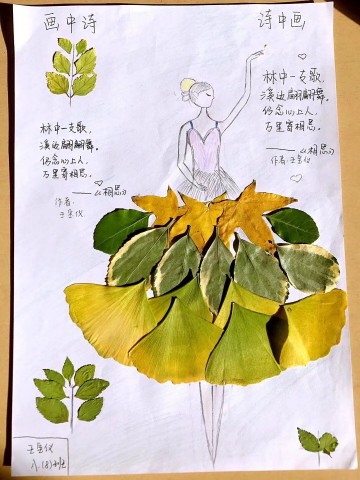 画中诗
诗中画
林中一支歌,
溪边翩翩舞。
仍念心上人,
万里寄相思。
——《相思》
作者:
王星仪
林中一支歌,
溪边翩翩舞。
仍念心上人,
万里寄相思。
——《相思》
作者:王星仪
王星仪
八.(8)班